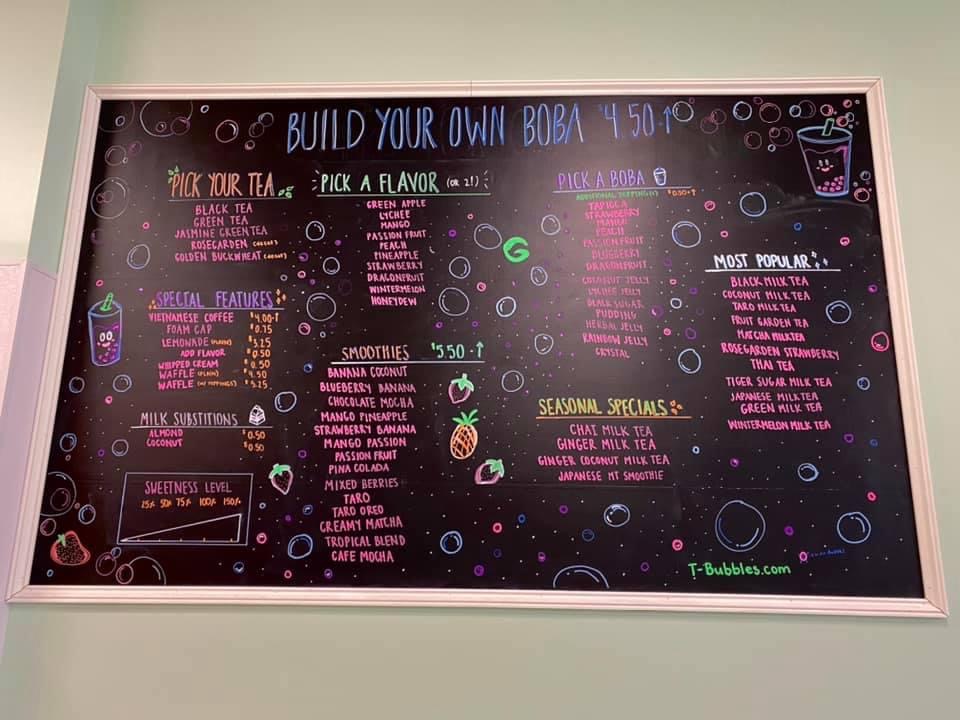 BUILD YOUR OWN BOBA $4.50+↑
PICK YOUR TEA
BLACK TEA
GREEN TEA
JASMINE GREEN TEA
ROSEGARDEN
GOLDEN BUCKWHEAT
SPECIAL FEATURES
VIETNAMESE COFFEE $4.00+↑
FOAM CAP $0.75
LEMONADE (PLAIN) $3.25
ADD FLAVOR $0.50
WHIPPED CREAM $0.50
WAFFLE (PLAIN) $4.50
WAFFLE (W/ TOPPINGS) $5.25
MILK SUBSTITIONS
ALMOND $0.50
COCONUT $0.50
SWEETNESS LEVEL
25% 50% 75% 100% 150%
PICK A FLAVOR (OR 2!)
GREEN APPLE
LYCHEE
MANGO
PASSION FRUIT
PEACH
PINEAPPLE
STRAWBERRY
DRAGONFRUIT
WINTERMELON
HONEYDEW
SMOOTHIES $5.50+↑
BANANA COCONUT
BLUEBERRY BANANA
CHOCOLATE MOCHA
MANGO PINEAPPLE
STRAWBERRY BANANA
MANGO PASSION
PASSION FRUIT
PINA COLADA
MIXED BERRIES
TARO
TARO OREO
CREAMY MATCHA
TROPICAL BLEND
CAFE MOCHA
G
PICK A BOBA
ADDITIONAL TOPPING(S) $0.50+↑
TAPIOCA
STRAWBERRY
MANGO
PEACH
PASSIONFRUIT
BLUEBERRY
DRAGONFRUIT
COCONUT JELLY
LYCHEE JELLY
BLACK SUGAR
PUDDING
HERBAL JELLY
RAINBOW JELLY
CRYSTAL
SEASONAL SPECIALS
CHAI MILK TEA
GINGER MILK TEA
GINGER COCONUT MILK TEA
JAPANESE MT SMOOTHIE
MOST POPULAR
BLACK MILK TEA
COCONUT MILK TEA
TARO MILK TEA
FRUIT GARDEN TEA
MATCHA MILKTEA
ROSEGARDEN STRAWBERRY
THAI TEA
TIGER SUGAR MILK TEA
JAPANESE MILKTEA
GREEN MILK TEA
WINTERMELON MILK TEA
T-Bubbles.com